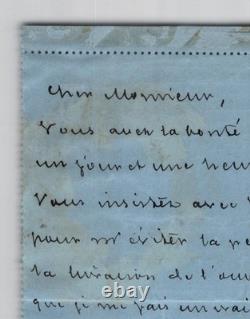 Cher Monsieur,
Vous avez la bonté
un jour et une heu
Vous insistez avec
pour m'éviter la pe
la livraison de l'ou
que je me fais un vrai